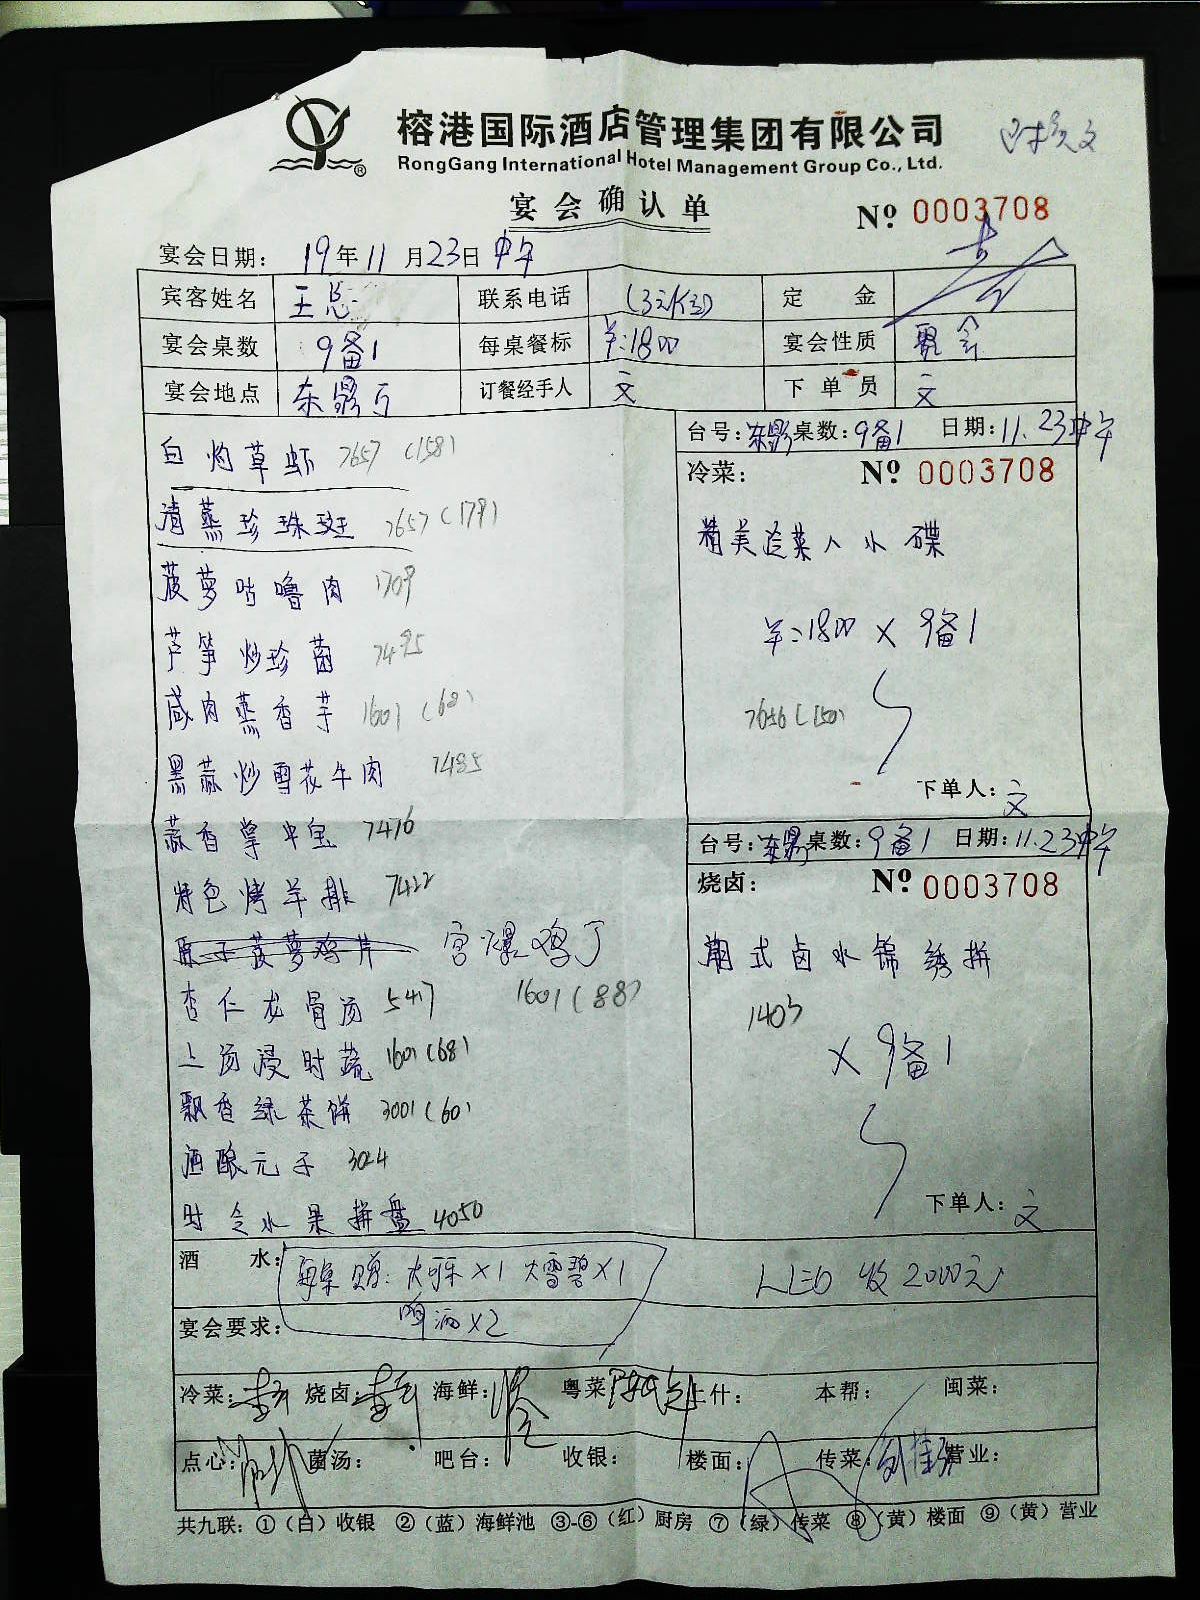 榕港国际酒店管理集团有限公司
RongGang International Hotel Management Group Co., Ltd.
宴会确认单
Nº 0003708
宴会日期: 19年11月23日 中午
宾客姓名 王总 联系电话 定金
宴会桌数 9备1 每桌餐标 羊:1800 宴会性质
宴会地点 东鼎厅 订餐经手人 文 下单员 文
白灼草虾 7657 (158)
清蒸珍珠斑 7657 (179)
菠萝咕噜肉 1709
芦笋炒珍菌 7495
咸肉蒸香芋 1601 (68)
黑蒜炒雪花牛肉 7485
蒜香掌中宝 7416
特色烤羊排 7422
宫爆鸡丁
杏仁龙骨汤 5417 1601 (88)
上汤浸时蔬 1601 (68)
飘香绿茶饼 3001 (60)
酒酿元子 3024
时令水果拼盘 4050
台号: 东鼎 桌数: 9备1 日期: 11.23中午
冷菜: Nº 0003708
精美冷菜八小碟
羊:1800 × 9备1
7656 (150)
下单人: 文
台号: 东鼎 桌数: 9备1 日期: 11.23中午
烧卤: Nº 0003708
潮式卤水锦绣拼
1403
× 9备1
下单人: 文
酒水: 每桌赠: 大可乐×1 大雪碧×1 LED 收2000元
宴会要求: 啤酒×2
冷菜: 烧卤: 海鲜: 粤菜: 上什: 本帮: 闽菜:
点心: 菌汤: 吧台: 收银: 楼面: 传菜: 营业:
共九联: ①(白)收银 ②(蓝)海鲜池 ③-⑥(红)厨房 ⑦(绿)传菜 ⑧(黄)楼面 ⑨(黄)营业